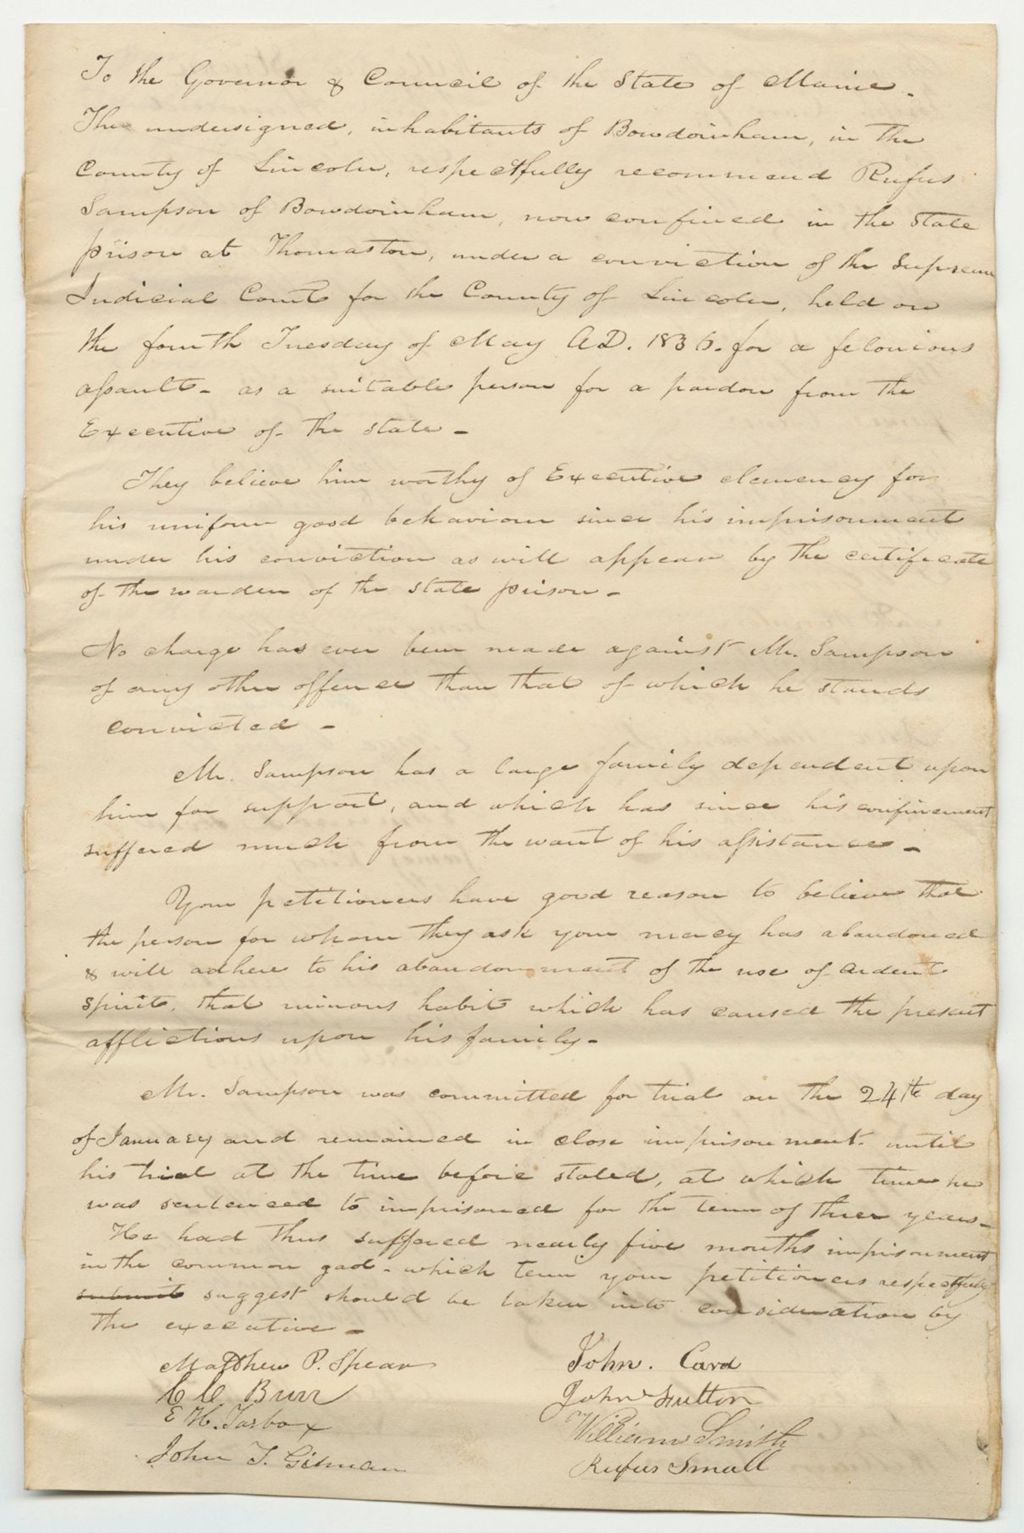 To the Governor & Council of the State of Maine.
The undersigned, inhabitants of Bowdoinham, in the
County of Lincoln, respectfully recommend Rufus
Sampson of Bowdoinham, now confined in the State
prison at Thomaston, under a conviction of the Supreme
Judicial Court for the County of Lincoln, held on
the fourth Tuesday of May A.D. 1836. for a felonious
assault - as a suitable person for a pardon from the
Executive of the State -
They believe him worthy of Executive clemency for
his uniform good behaviour since his imprisonment
under his conviction as will appear by the certificate
of the warden of the State prison -
No charge has ever been made against Mr. Sampson
of any other offence than that of which he stands
convicted -
Mr. Sampson has a large family dependent upon
him for support, and which has since his confinement
suffered much from the want of his assistance -
Your petitioners have good reason to believe that
the person for whom they ask your mercy has abandoned
& will adhere to his abandonment of the use of ardent
spirits, that ruinous habit which has caused the present
afflictions upon his family -
Mr. Sampson was committed for trial on the 24th day
of January and remained in close imprisonment until
his trial at the time before stated, at which time he
was sentenced to imprisoned for the term of three years -
He had thus suffered nearly five months imprisonment
in the common gaol - which term your petitioners respectfully
submit suggest should be taken into consideration by
the executive -
Matthew P. Spear
John. Card
C C Burr
John Sutton
E H. Tarbox
William Smith
John T. Gilman
Rufus Small